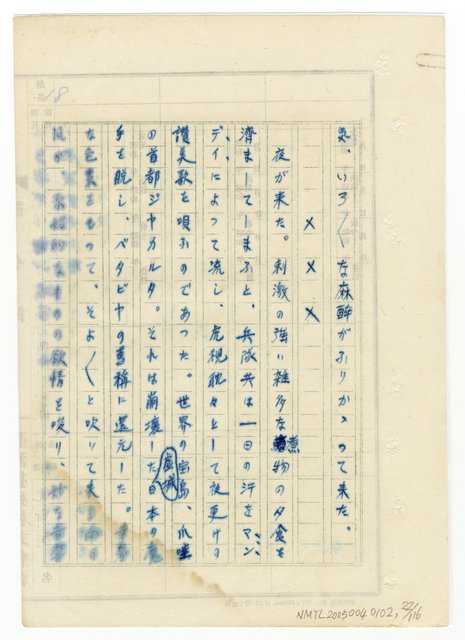 気、いろ〱な麻酔がふりかゝつて来た。
× × ×
夜が来た。刺激の強い雑多な煮物の夕食を
済ましてしまふと、兵隊共は一日の汗をマン、
デイによつて流し、虎視耽々として夜更けの
讃美歌を唄ふのであつた。世界の宝島、爪哇
の首都ジヤカルタ。それは崩壊した日本の
虚城
手を脱し、バタビヤの旧称に還元した。
な色素をもつて、そよ〱と吹いて来る
風が、原始的なものの欲情を唆り、妙な
18.
NMTL20050040102, 22/116